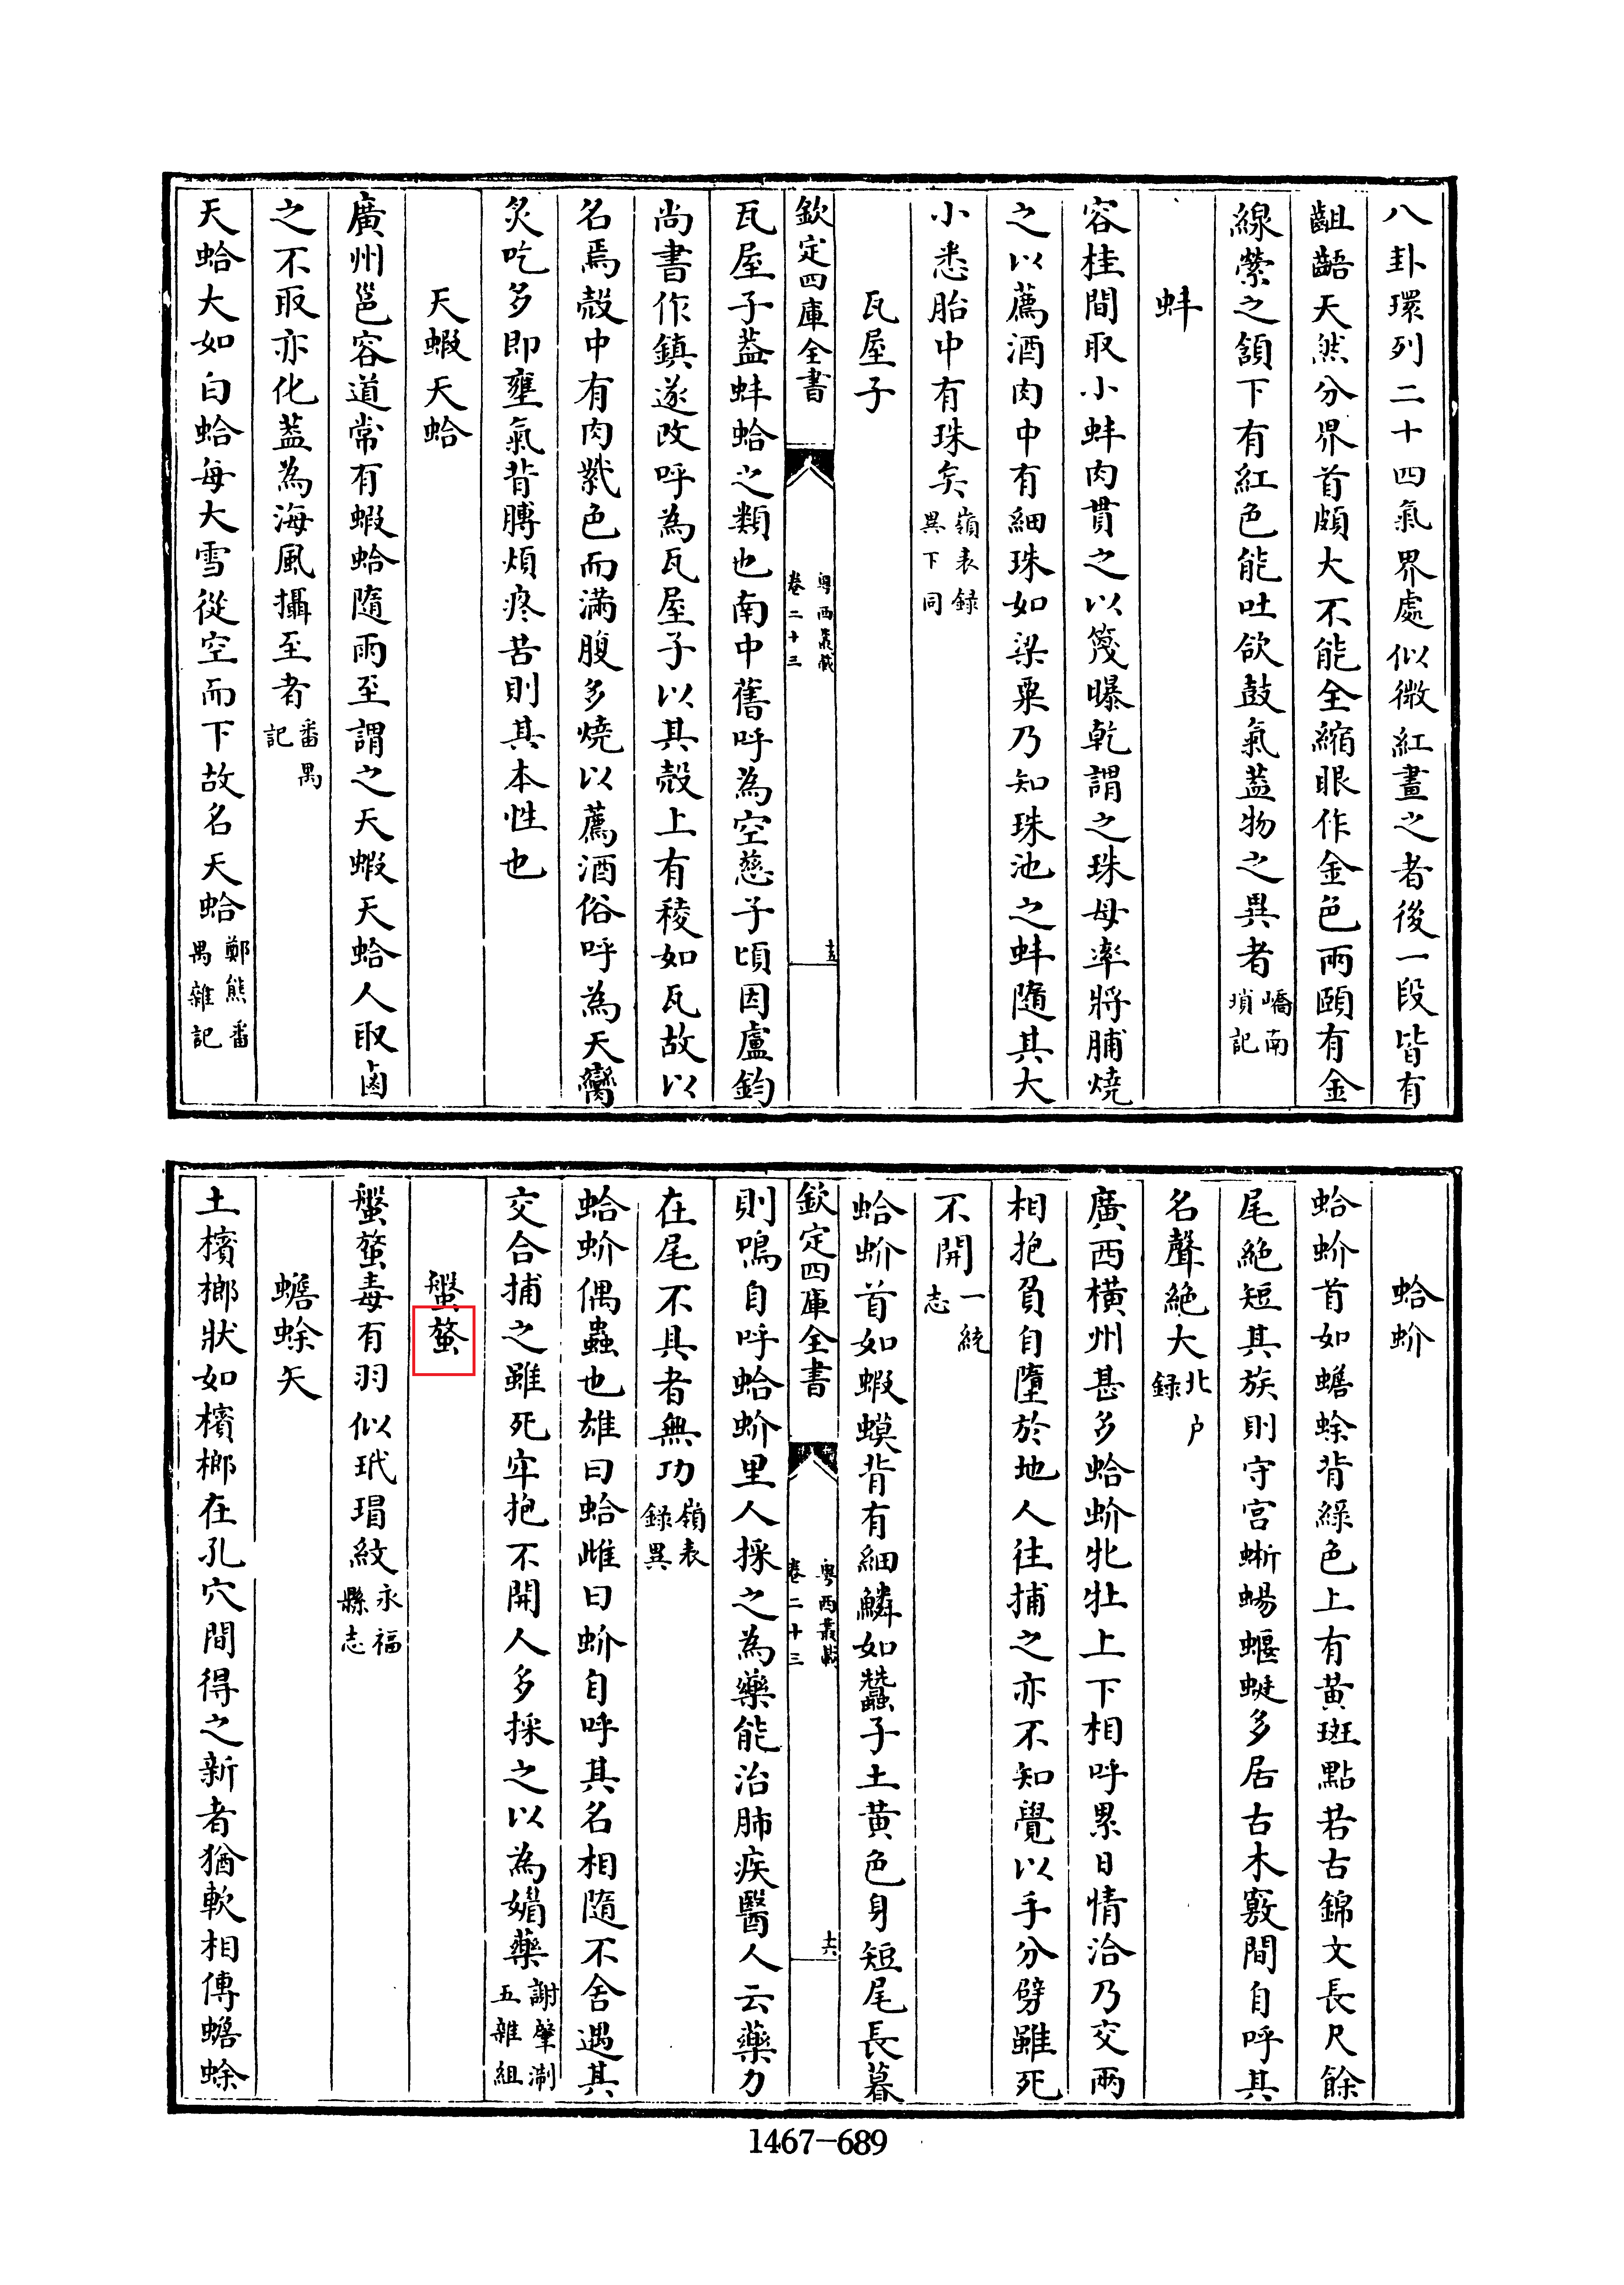 八卦環列二十四氣界處似微紅畫之者後一段皆有
齟齬天然分界首頗大不能全縮眼作金色兩頤有金
線縈之頷下有紅色能吐欲鼓氣葢物之異者嶠南瑣記
蚌
容桂間取小蚌肉貫之以篾曝乾謂之珠母率將脯燒
之以薦酒肉中有細珠如梁粟乃知珠池之蚌隨其大
小悉胎中有珠矣嶺表録異下同
瓦屋子
欽定四庫全書 粤西叢載 卷二十三 十五
瓦屋子葢蚌蛤之類也南中舊呼為空慈子頃因盧鈞
尚書作鎮遂改呼為瓦屋子以其殻上有稜如瓦故以
名焉殻中有肉紫色而滿腹多燒以薦酒俗呼為天臠
炙吃多即壅氣背膊煩疼苦則其本性也
天蝦天蛤
廣州邕容道常有蝦蛤隨雨至謂之天蝦天蛤人取鹵
之不取亦化葢為海風攝至者番禺記
天蛤大如白蛤每大雪從空而下故名天蛤鄭熊番禺雜記
蛤蚧
蛤蚧首如蟾蜍背綠色上有黄斑點若古錦文長尺餘
尾絶短其族則守宫蜥蜴蝘蜓多居古木竅間自呼其
名聲絶大北户録
廣西橫州甚多蛤蚧牝牡上下相呼累日情洽乃交兩
相抱負自墮於地人往捕之亦不知覺以手分劈雖死
不開一統志
蛤蚧首如蝦蟆背有細鱗如蠶子土黄色身短尾長暮
欽定四庫全書 粤西叢載 卷二十三 十六
則鳴自呼蛤蚧里人採之為藥能治肺疾醫人云藥力
在尾不具者無功嶺表録異
蛤蚧偶蟲也雄曰蛤雌曰蚧自呼其名相隨不舍遇其
交合捕之雖死牢抱不開人多採之以為媚藥謝肇淛五雜組
螌蝥
螌蝥毒有羽似玳瑁紋永福縣志
蟾蜍矢
土檳榔狀如檳榔在孔穴間得之新者猶軟相傳蟾蜍
1467-689